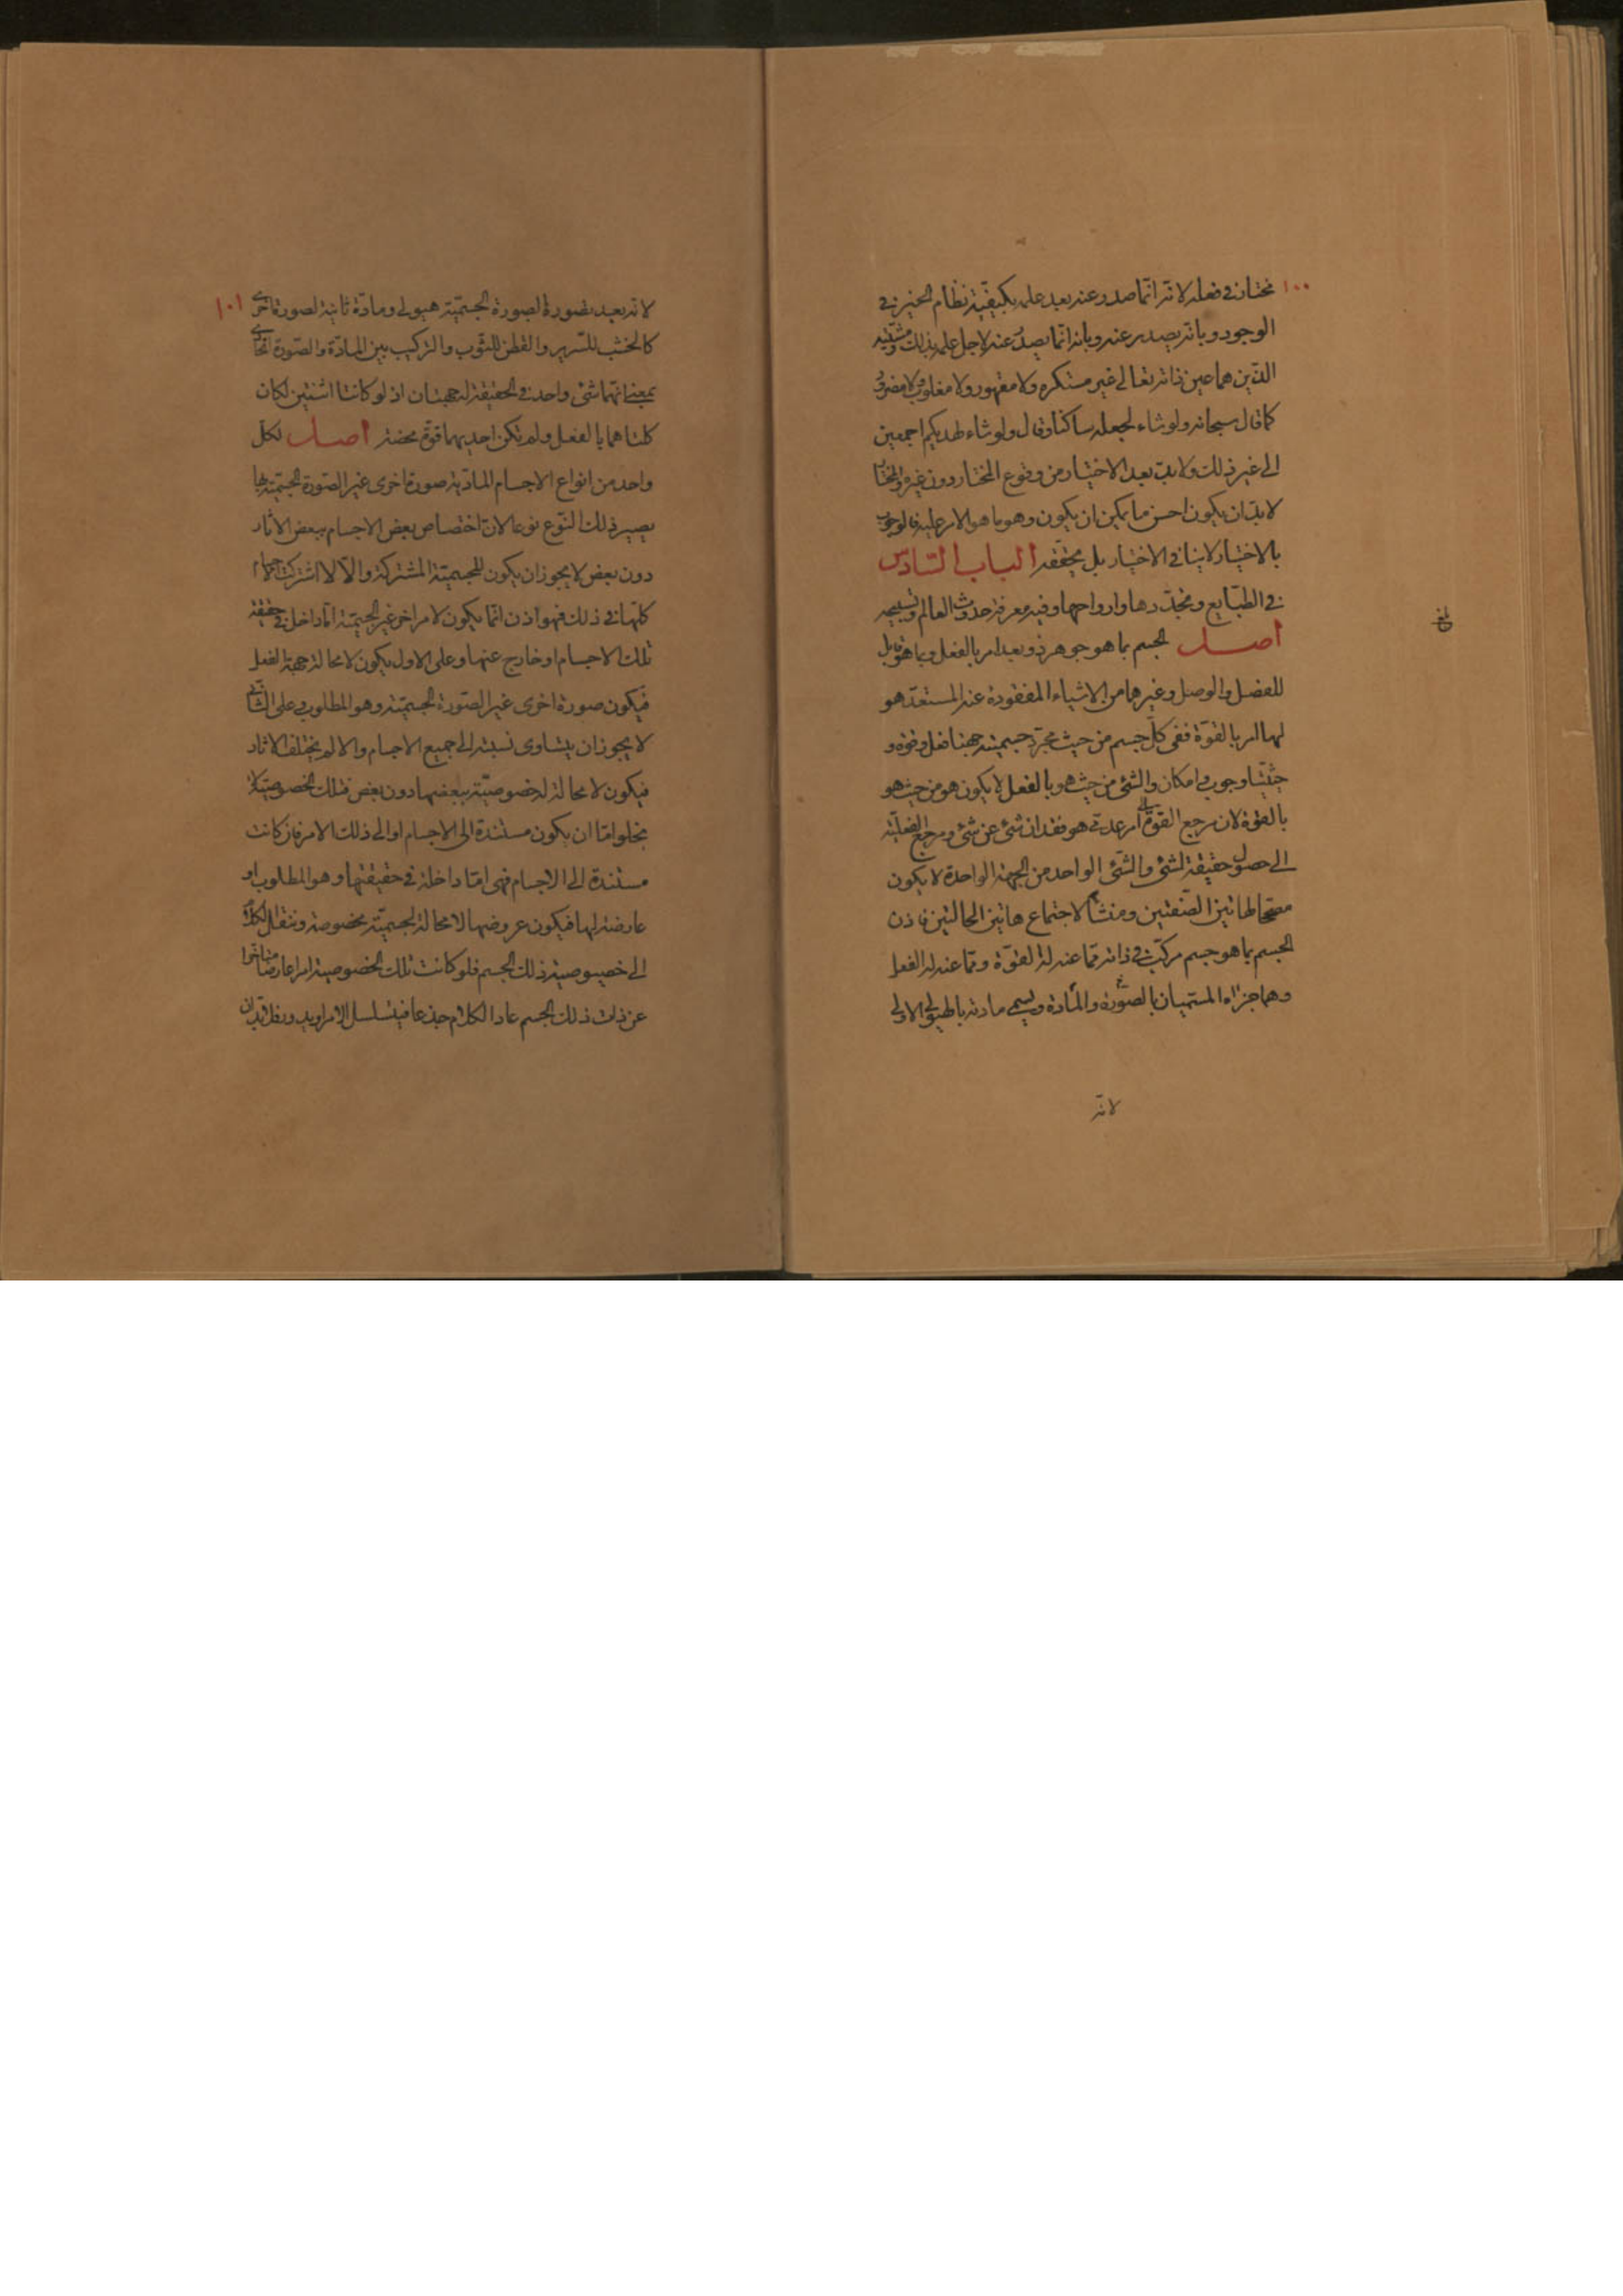 ١٠٠
مختار في فعله لانه انما صدر عنه بعد علمه بكيفية نظام الخير في
الوجود وبانه يصدر عنه وبانه انما يصدر عنه لاجل علمه بذلك ومشيته
الذين هما عين ذاته تعالى غير مستكره ولا مقهور ولا مغلوب ولا مضرور
كما قال سبحانه ولو شاء لجعله ساكنا وقال ولو شاء لهديكم اجمعين
الى غير ذلك ولا بد بعد الاختيار من وقوع المختار دون غيره والمختار
لا بد ان يكون احسن ما يمكن ان يكون وهو ما هو الامر عليه فالوجوب
بالاختيار لا ينافي الاختيار بل يحققه الباب السادس
في الطبايع وتجددها وارواحها وفيه معرفة حدوث العالم وتسبيحه
اصل الجسم بما هو جوهر ذو بعد امر بالفعل وبما هو قابل
للفصل والوصل وغيرهما من الاشياء المفقودة عنه المستعد هو
لها امر بالقوة ففي كل جسم من حيث مجرد جسميته جهتا فعل وقوة و
حيثيتا وجوب وامكان والشئ من حيث هو بالفعل لا يكون هو من حيث هو
بالقوة لان مرجع القوة الى امر عدمي هو فقدان شئ عن شئ ومرجع الفعلية
الى حصول حقيقة لشئ والشئ الواحد من الجهة الواحدة لا يكون
مصححا لهاتين الصفتين ومنشأ لاجتماع هاتين الحالتين فاذن
الجسم بما هو جسم مركب في ذاته مما عنه له القوة ومما عنه له الفعل
وهما جزءاه المسميان بالصورة والمادة ويسمى مادته بالهيولى الاولى
لانه
١٠١
لانه بعد تصوره لصورة الجسمية هيولى ومادة ثانية لصورة اخرى
كالخشب للسرير والقطن للثوب والتركيب بين المادة والصورة اتحادي
بمعنى انهما شئ واحد في الحقيقة له جهتان اذ لو كانتا اثنتين لكان
كلتاهما بالفعل ولم تكن احديهما قوة محضة اصل لكل
واحد من انواع الاجسام المادية صورة اخرى غير الصورة الجسمية بها
يصير ذلك النوع نوعا لان اختصاص بعض الاجسام ببعض الاثار
دون بعض لا يجوز ان يكون للجسمية المشتركة والا لاشتركت الاجسام
كلها في ذلك فهو اذن انما يكون لامر اخر غير الجسمية اما داخل في حقيقة
تلك الاجسام او خارج عنها وعلى الاول يكون لا محالة جهة الفعل
فيكون صورة اخرى غير الصورة الجسمية وهو المطلوب وعلى الثاني
لا يجوز ان يتساوى نسبته الى جميع الاجسام والا لم يختلف الاثار
فيكون لا محالة له خصوصية ببعضها دون بعض فتلك الخصوصية لا
يخلو اما ان يكون مستندة الى الاجسام او الى ذلك الامر فان كانت
مستندة الى الاجسام فهي اما داخلة في حقيقتها وهو المطلوب او
عارضة لها فيكون عروضها لا محالة لجسمية مخصوصة وننقل الكلام
الى خصوصية ذلك الجسم فلو كانت تلك الخصوصية امرا عارضا متاخرا
عن ذات ذلك الجسم عاد الكلام جذعا فيتسلسل الامر او يدور فلا بد ان